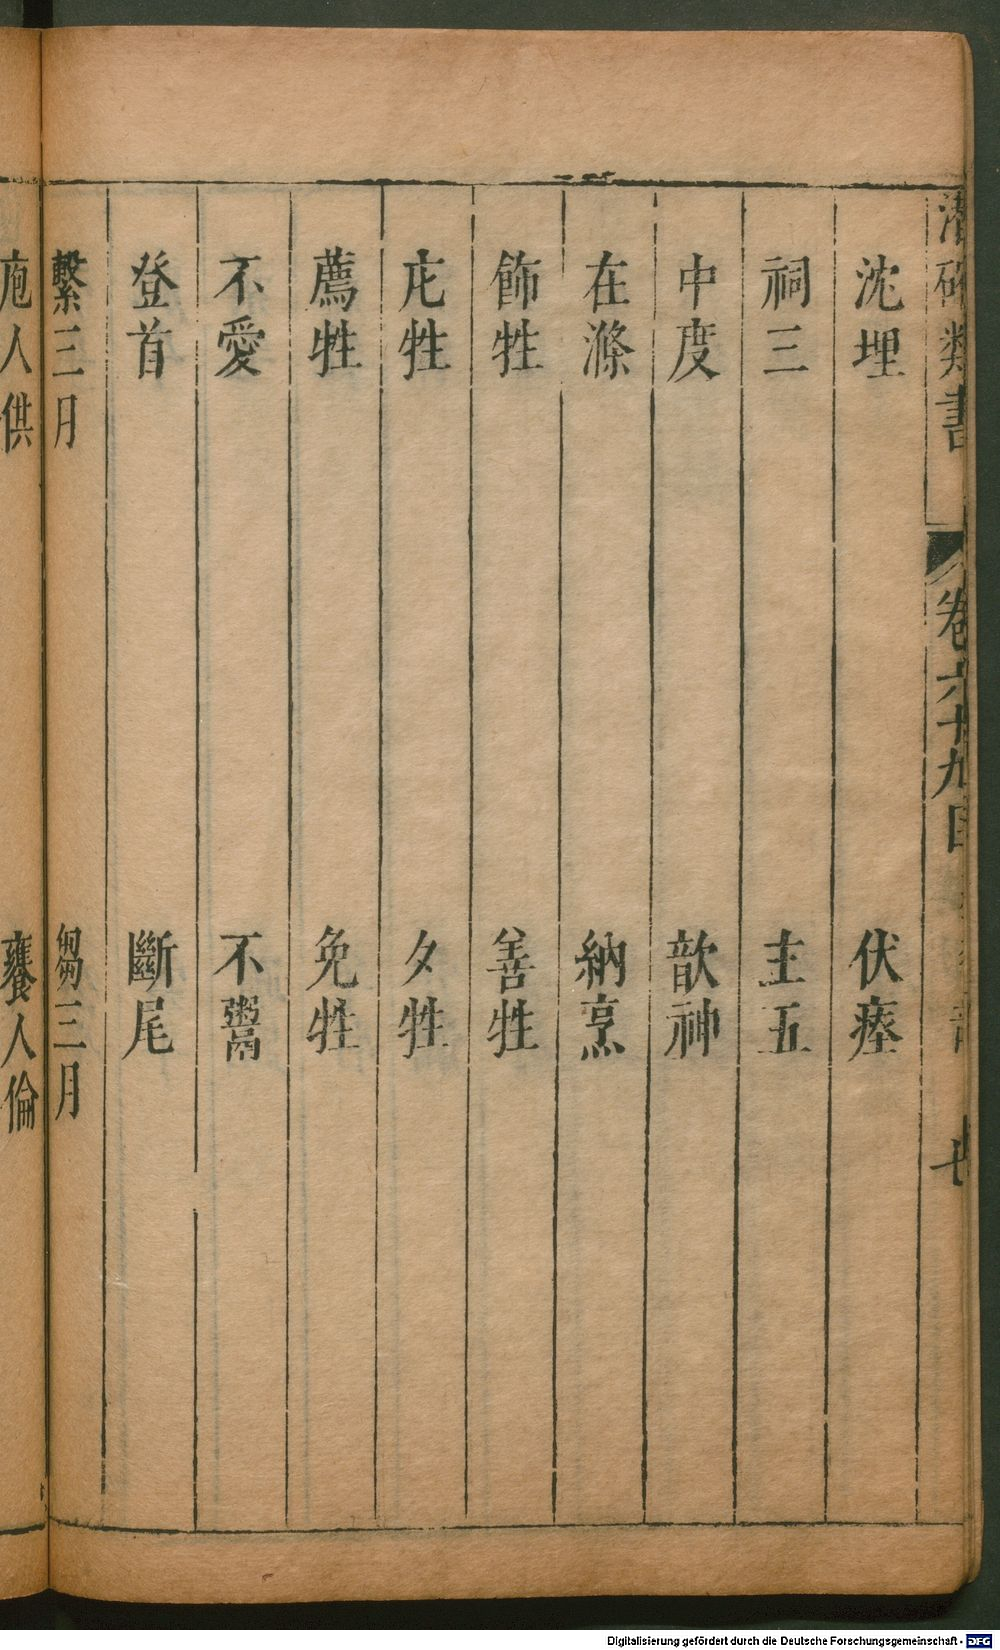 潛確類書 卷六十九目 七
沈埋 伏瘞
祠三 主五
中度 歆神
在滌 納烹
飾牲 善牲
庀牲 夕牲
薦牲 免牲
不愛 不鬻
登首 斷尾
繫三月 芻三月
庖人供 饔人倫
Digitalisierung gefördert durch die Deutsche Forschungsgemeinschaft - DFG